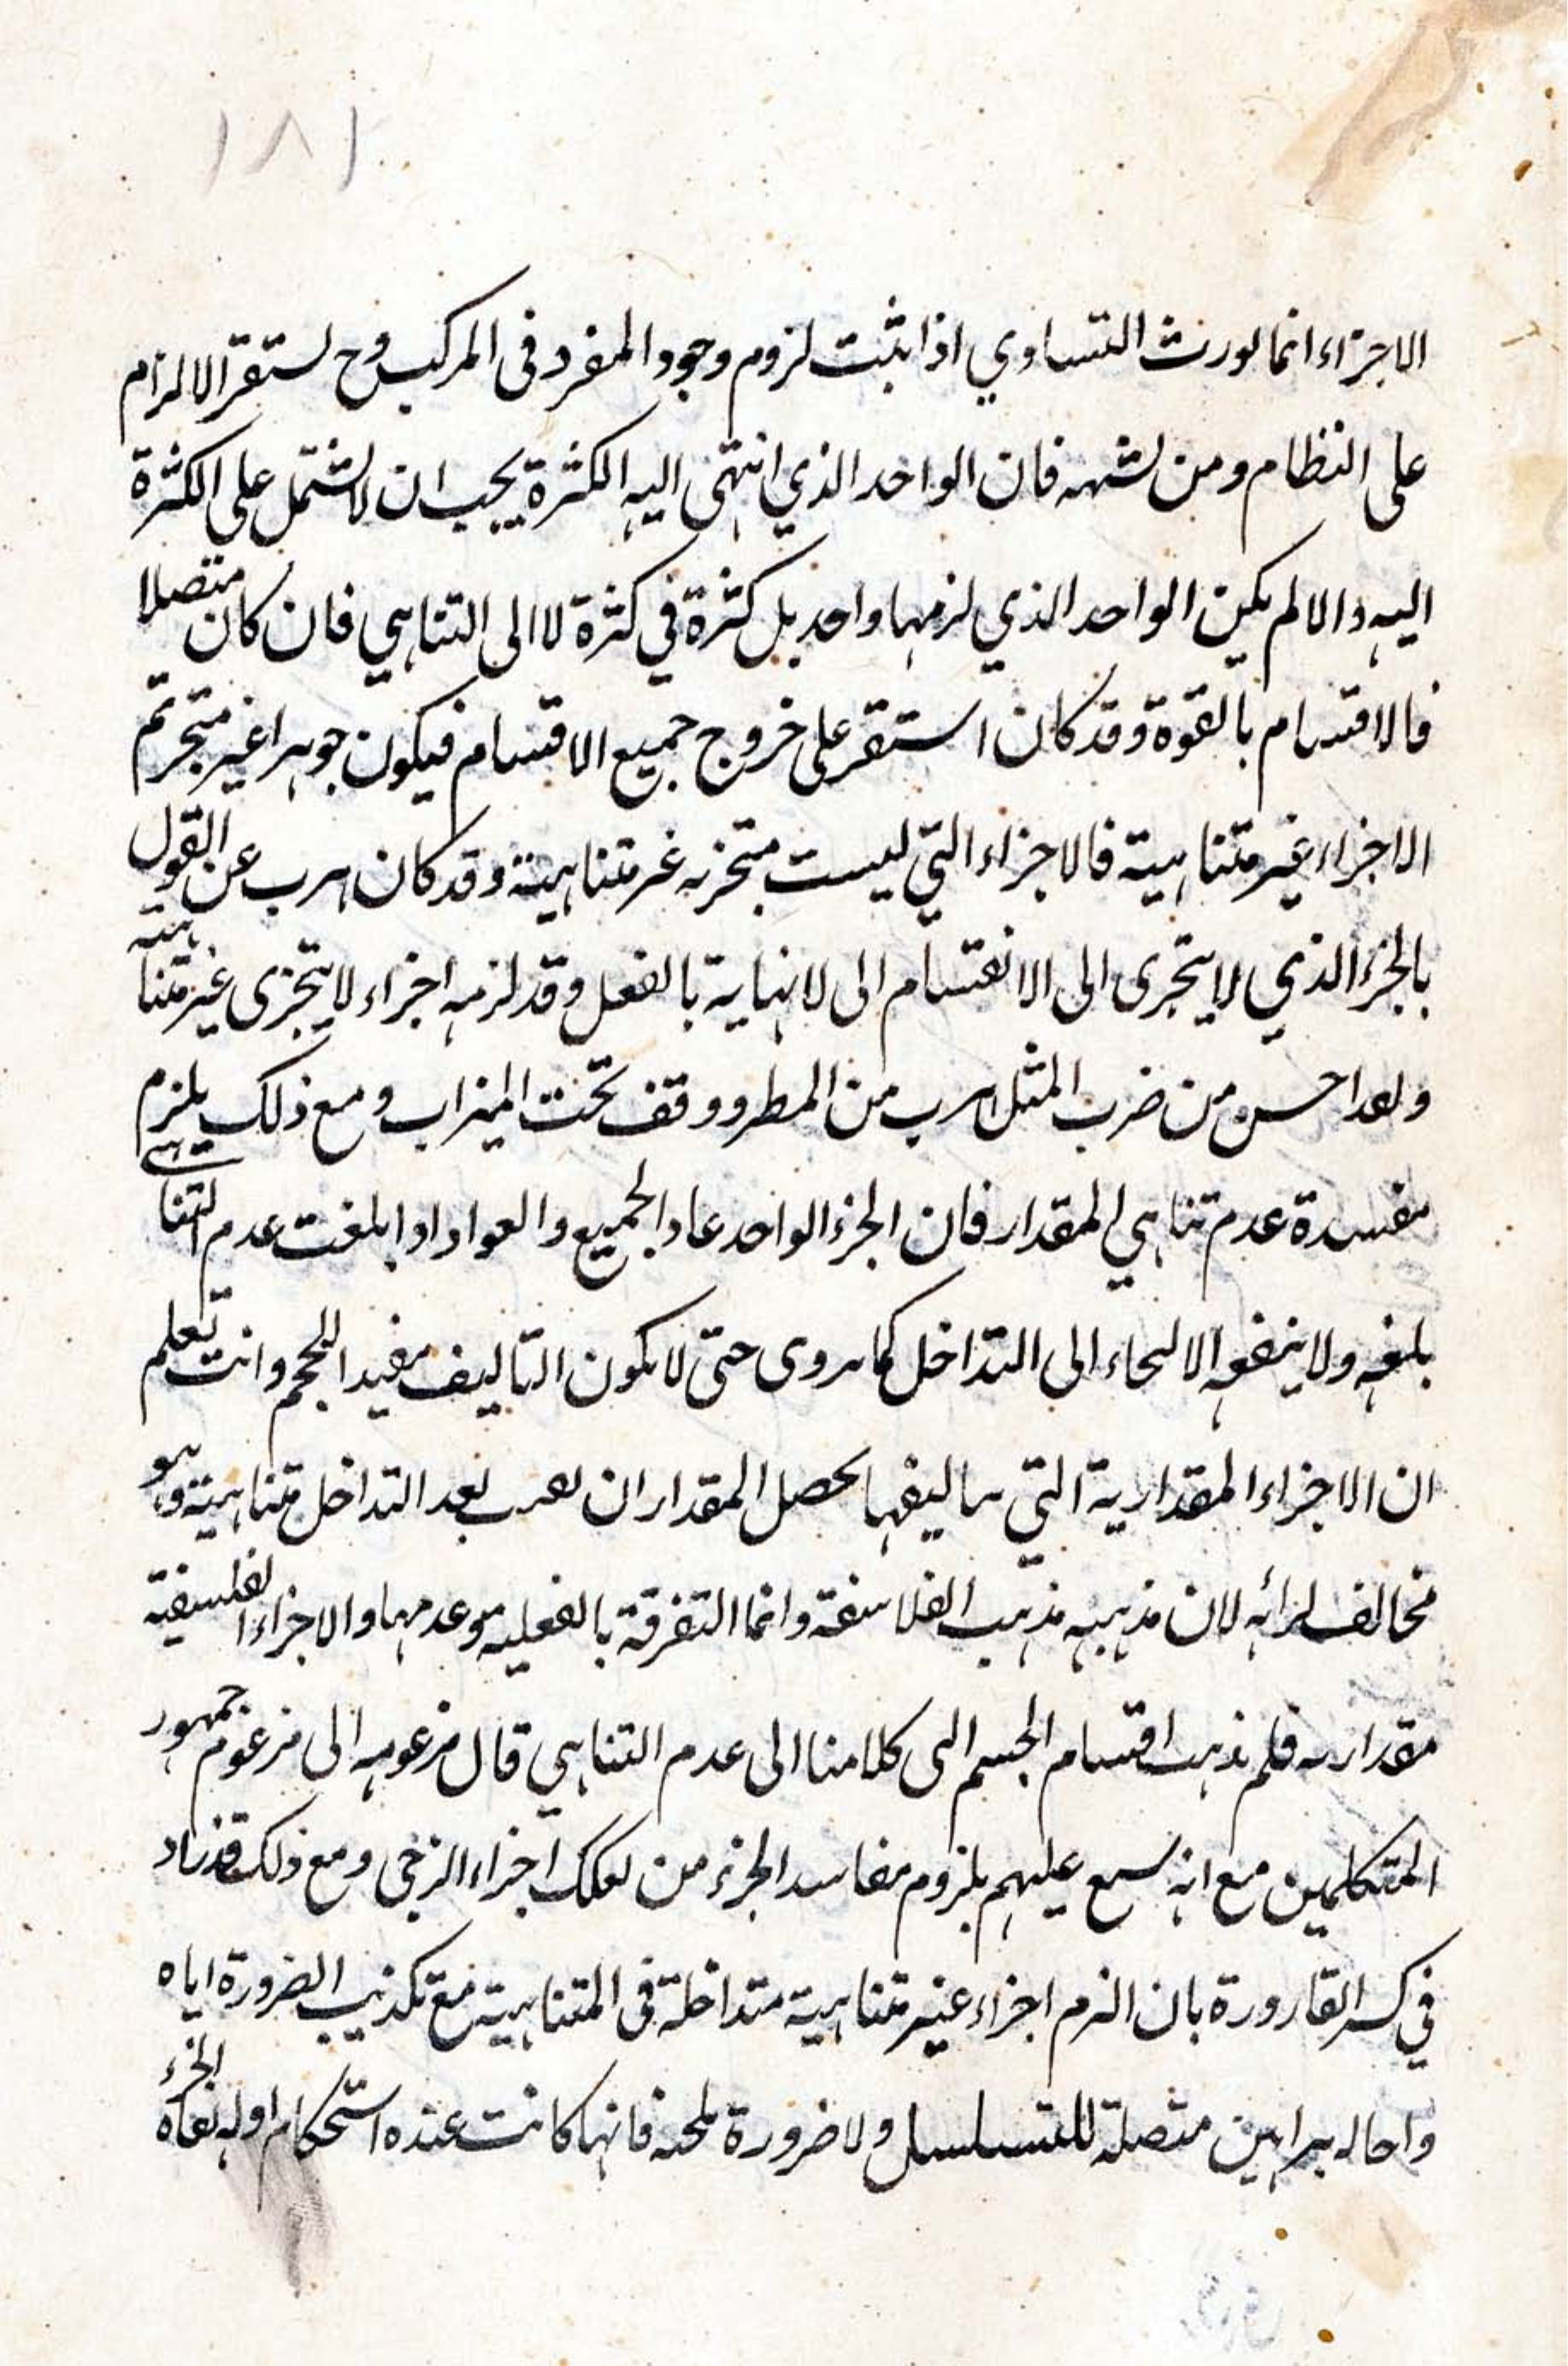 ١٨١
الاجزاء انما يورث التساوي اذا ثبت لزوم وجود المفرد في المركب وح يستقر الالزام
على النظام ومن يشبهه فان الواحد الذي انتهى اليه الكثرة يجب ان لا يشتمل على الكثرة
اليه والا لم يكن الواحد الذي لزمها واحد بل كثرة في كثرة لا الى التناهي فان كان متصلا
فالاقسام بالقوة وقد كان استقر على خروج جميع الاقسام فيكون جوهرا غير متجز ثم
الاجزاء غير متناهية فالاجزاء التي ليست متجزيه غير متناهية وقد كان هرب عن القول
بالجزء الذي لا يتجزى الى الانقسام الى لا نهاية بالفعل وقد لزمه اجزاء لا يتجزى غير متناهية
ولعد احسن من ضرب المثل هرب من المطر ووقف تحت الميزاب ومع ذلك يلزم
مفسدة عدم تناهي المقدار فان الجزء الواحد عاد الجميع والعواد اذا بلغت عدم التناهي
بلغه ولا ينفعه الالتجاء الى التداخل كما يروى حتى لا يكون التاليف مفيدا للحجم وانت تعلم
ان الاجزاء المقدارية التي بتاليفها يحصل المقدار ان بعد التداخل متناهية وهو
مخالف لرائه لان مذهبه مذهب الفلاسفة وانما التفرقة بالفعلية وعدمها والاجزاء الفلسفية
مقداريه فلم يذهب اقسام الجسم التي كلامنا الى عدم التناهي قال مزعومه الى مزعوم جمهور
المتكلمين مع انه عليهم بلزوم مفاسد الجزء من تفكك اجزاء الرحى ومع ذلك قد زاد
في كسر القارورة بان التزم اجزاء غير متناهية متداخلة في المتناهية مع تكذيب الضرورة اياه
واحاله براهين متصلة للتسلسل ولا ضرورة فانها كانت عنده استحكام اوله نفاة الجزء